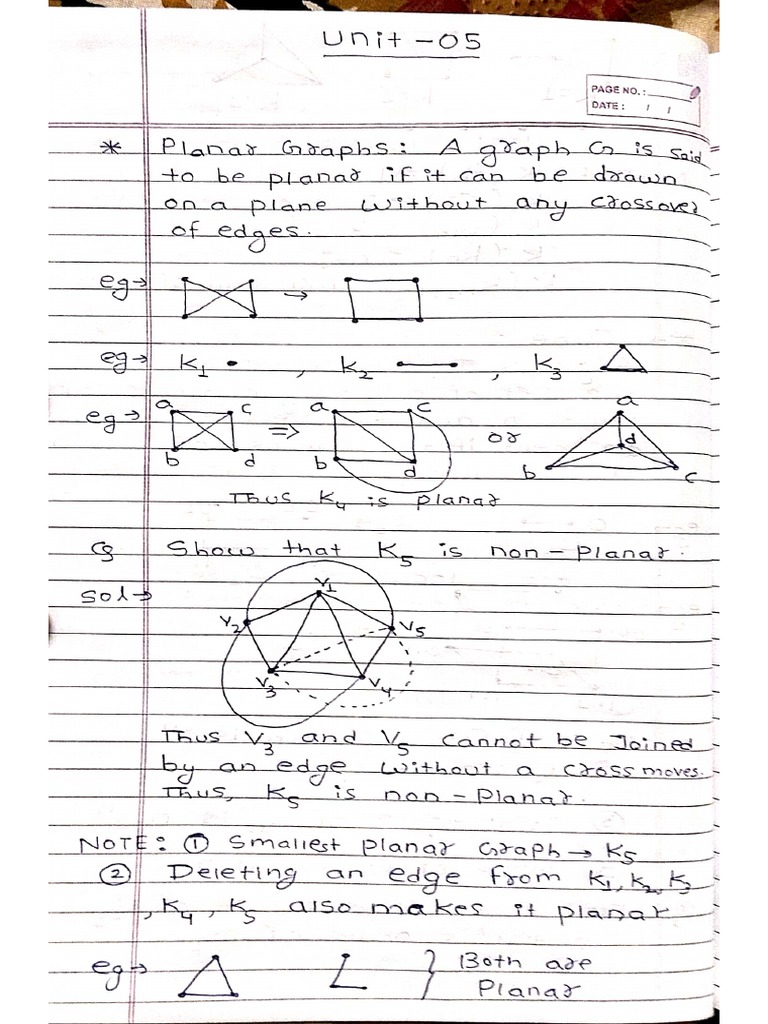 Unit - 05
PAGE NO.:
DATE: / /
* Planar Graphs: A graph G is said
to be planar if it can be drawn
on a plane without any crossover
of edges.
eg→ →
eg→ K1 , K2 , K3
eg→ a c b d => a c b d or a d b c
Thus K4 is planar
Q Show that K5 is non-planar.
Sol→ V1 V2 V5 V3 V4
Thus V3 and V5 cannot be Joined
by an edge without a cross moves.
Thus, K5 is non-Planar.
NOTE: ① Smallest planar Graph → K5
② Deleting an edge from K1, K2, K3
, K4, K5 also makes it planar
eg→ } Both are
Planar